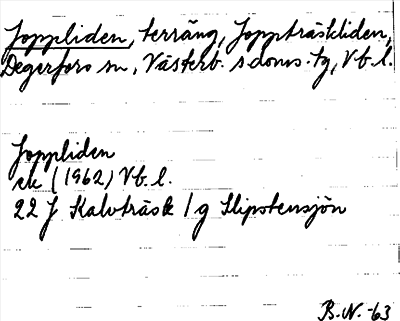 Joppliden, terräng, Joppträskliden,
Degerfors sn, Västerb. s doms. tg, Vb. l.
Joppliden
ek (1962) Vb. l.
22 J Kalvträsk / g Slipstensjön
B. N. -63